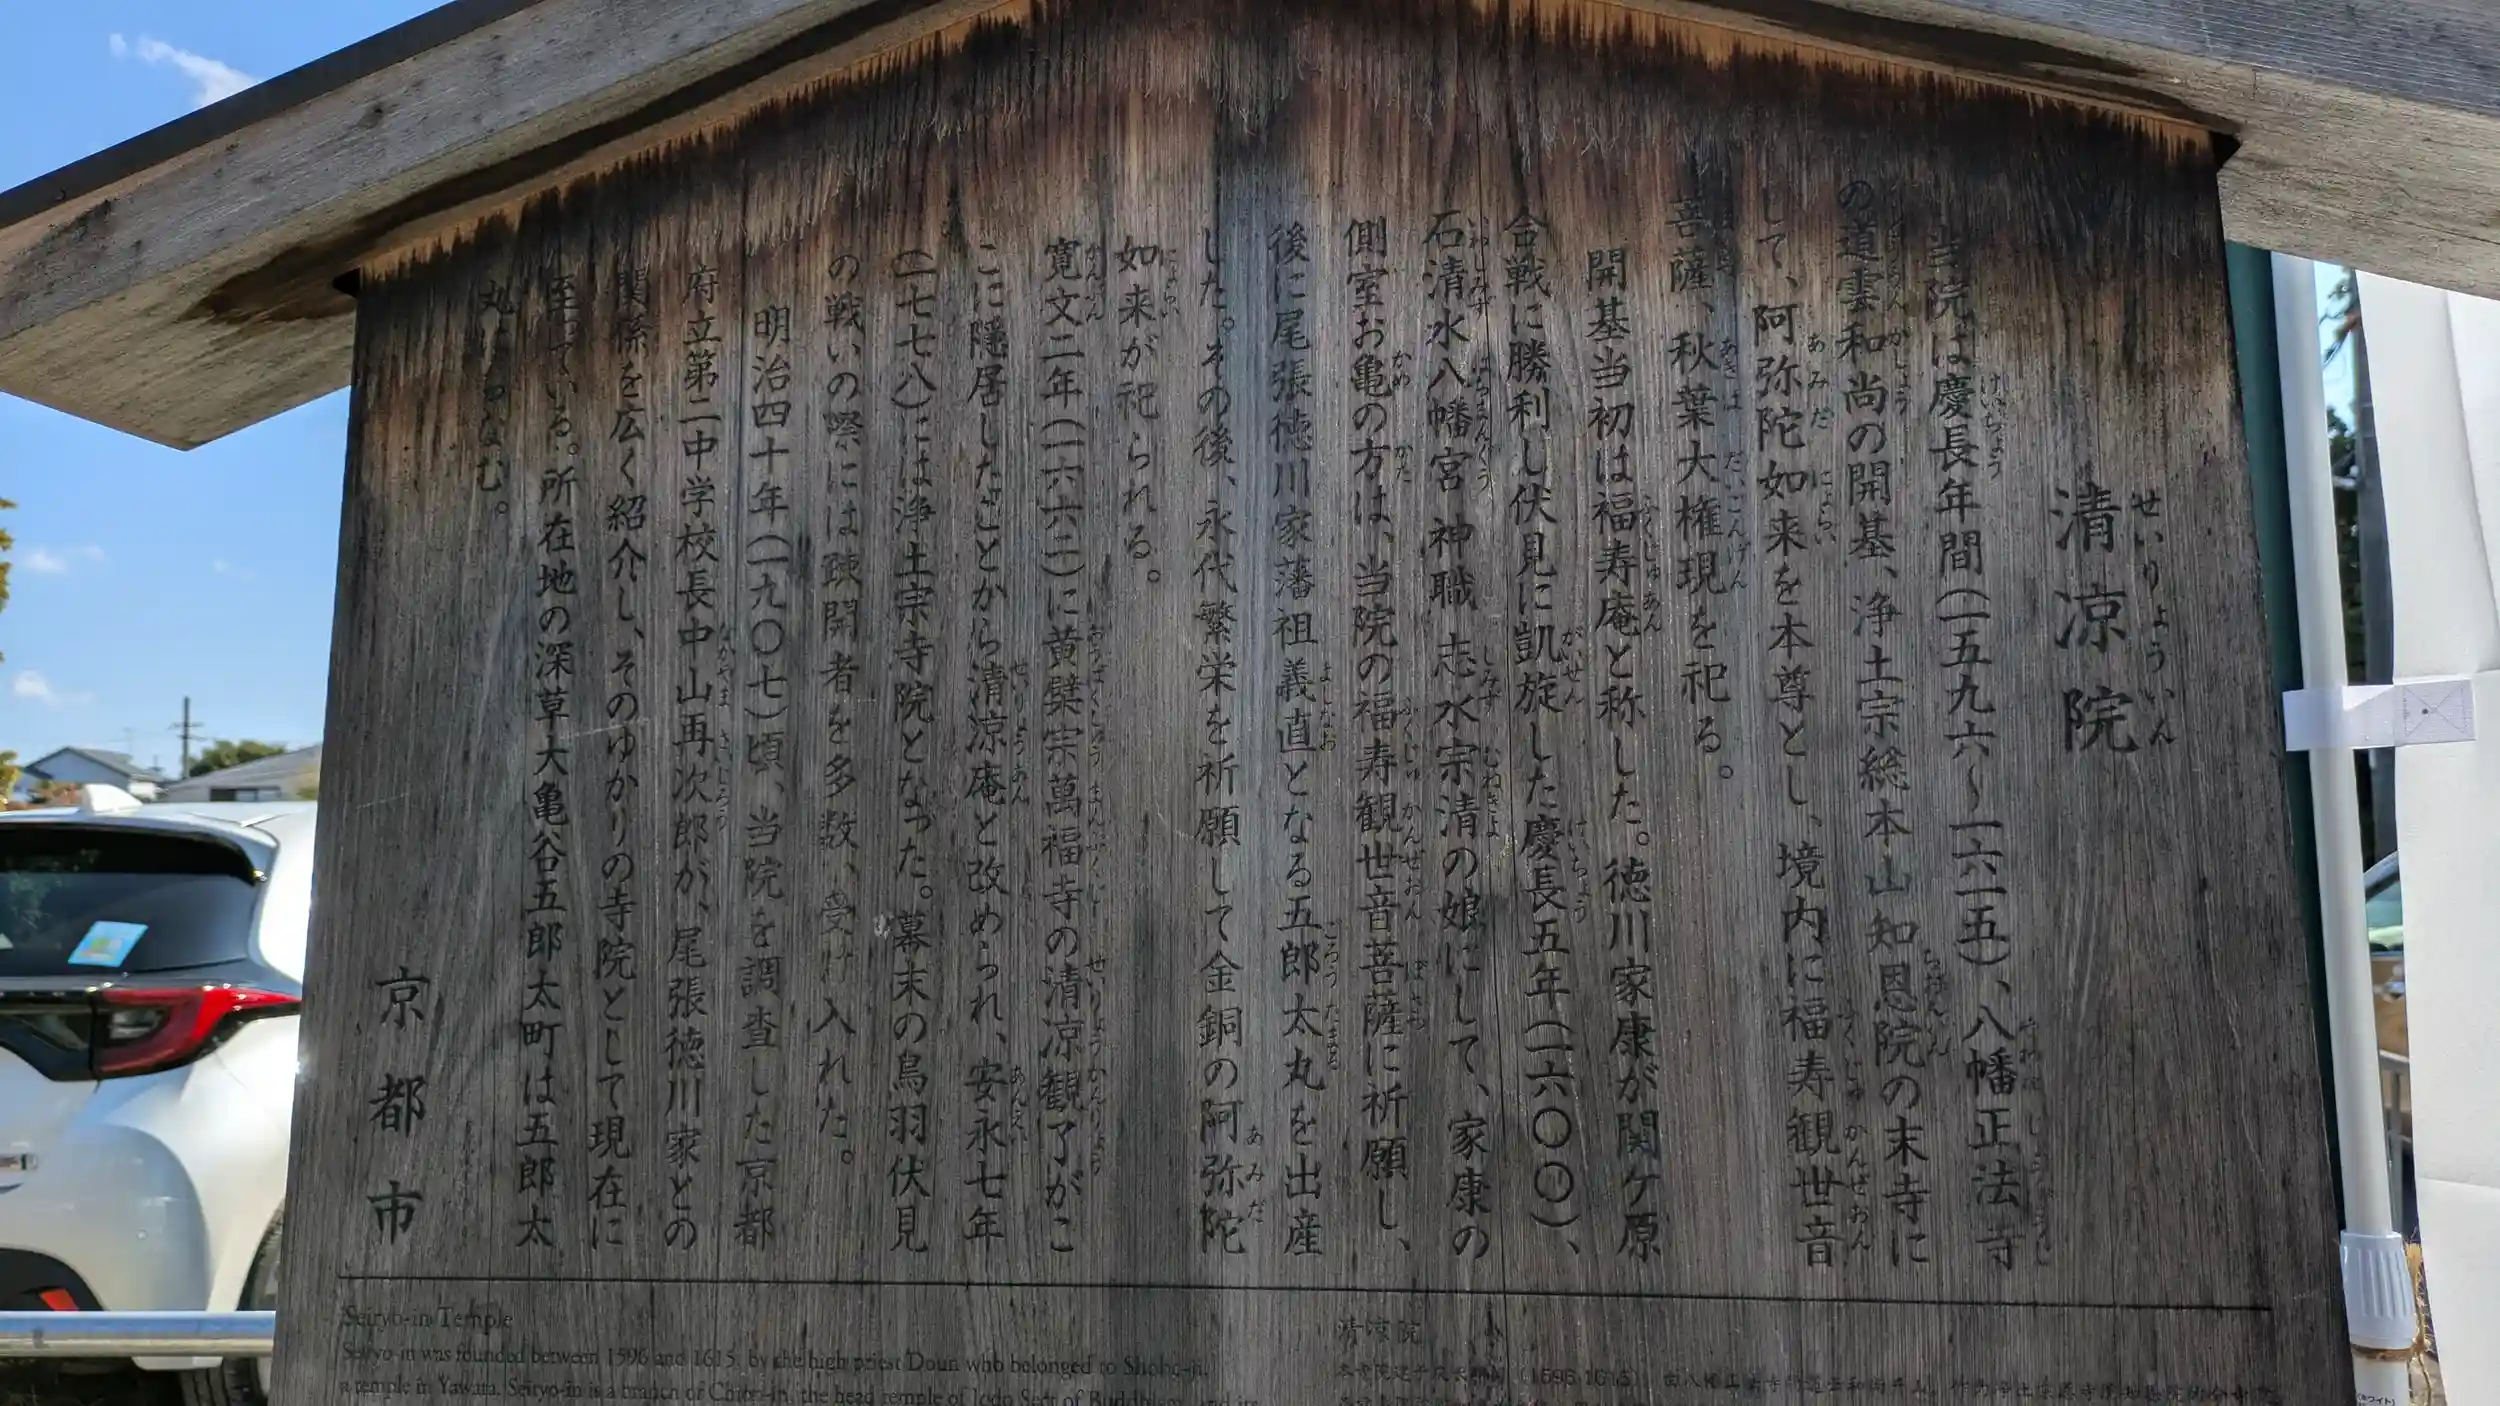 清涼院
せいりょういん
当院は慶長年間(一五九六〜一六一五)、八幡正法寺
の道雲和尚の開基、浄土宗総本山知恩院の末寺に
して、阿弥陀如来を本尊とし、境内に福寿観世音
菩薩、秋葉大権現を祀る。
開基当初は福寿庵と称した。徳川家康が関ケ原
合戦に勝利し伏見に凱旋した慶長五年(一六〇〇)、
石清水八幡宮神職志水宗清の娘にして、家康の
側室お亀の方は、当院の福寿観世音菩薩に祈願し、
後に尾張徳川家藩祖義直となる五郎太丸を出産
した。その後、永代繁栄を祈願して金銅の阿弥陀
如来が祀られる。
寛文二年(一六六二)に黄檗宗萬福寺の清凉観了がこ
こに隠居したことから清涼庵と改められ、安永七年
(一七七八)には浄土宗寺院となった。幕末の鳥羽伏見
の戦いの際には疎開者を多数、受け入れた。
明治四十年(一九〇七)頃、当院を調査した京都
府立第二中学校長中山再次郎が、尾張徳川家との
関係を広く紹介し、そのゆかりの寺院として現在に
至っている。所在地の深草大亀谷五郎太町は五郎太
丸にちなむ。
京都市
Seiryo-in Temple
Seiryo-in was founded between 1596 and 1615, by the high priest Doun who belonged to Shoho-ji,
a temple in Yawata. Seiryo-in is a branch of Chion-in, the head temple of Jodo Sect of Buddhism, and its
清涼院